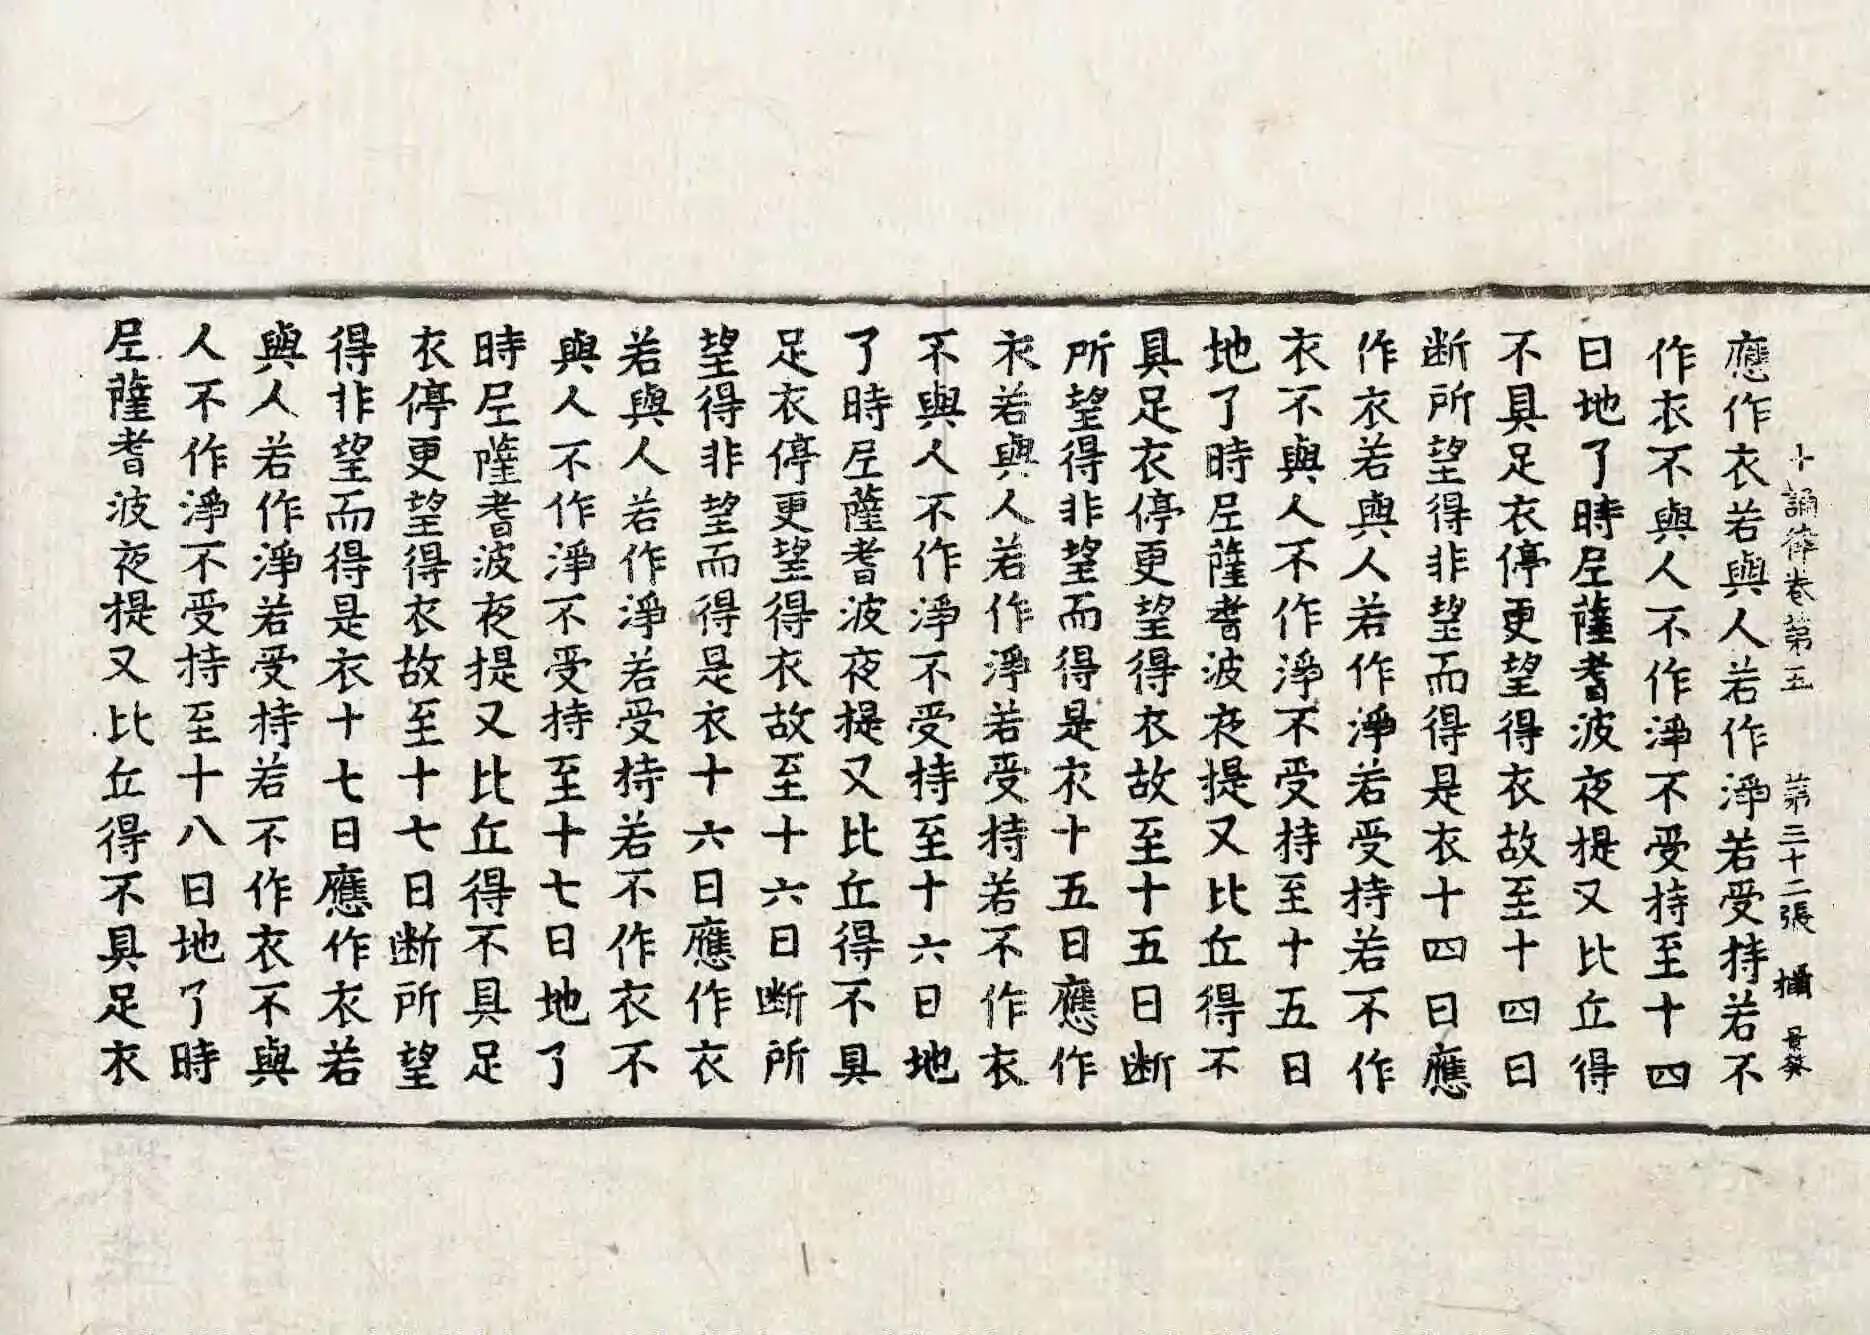 十誦律卷第五 第三十二張 攝
應作衣若與人若作淨若受持若不
作衣不與人不作淨不受持至十四
日地了時尼薩耆波夜提又比丘得
不具足衣停更望得衣故至十四日
断所望得非望而得是衣十四日應
作衣若與人若作淨若受持若不作
衣不與人不作淨不受持至十五日
地了時尼薩耆波夜提又比丘得不
具足衣停更望得衣故至十五日断
所望得非望而得是衣十五日應作
衣若與人若作淨若受持若不作衣
不與人不作淨不受持至十六日地
了時尼薩耆波夜提又比丘得不具
足衣停更望得衣故至十六日断所
望得非望而得是衣十六日應作衣
若與人若作淨若受持若不作衣不
與人不作淨不受持至十七日地了
時尼薩耆波夜提又比丘得不具足
衣停更望得衣故至十七日断所望
得非望而得是衣十七日應作衣若
與人若作淨若受持若不作衣不與
人不作淨不受持至十八日地了時
尼薩耆波夜提又比丘得不具足衣